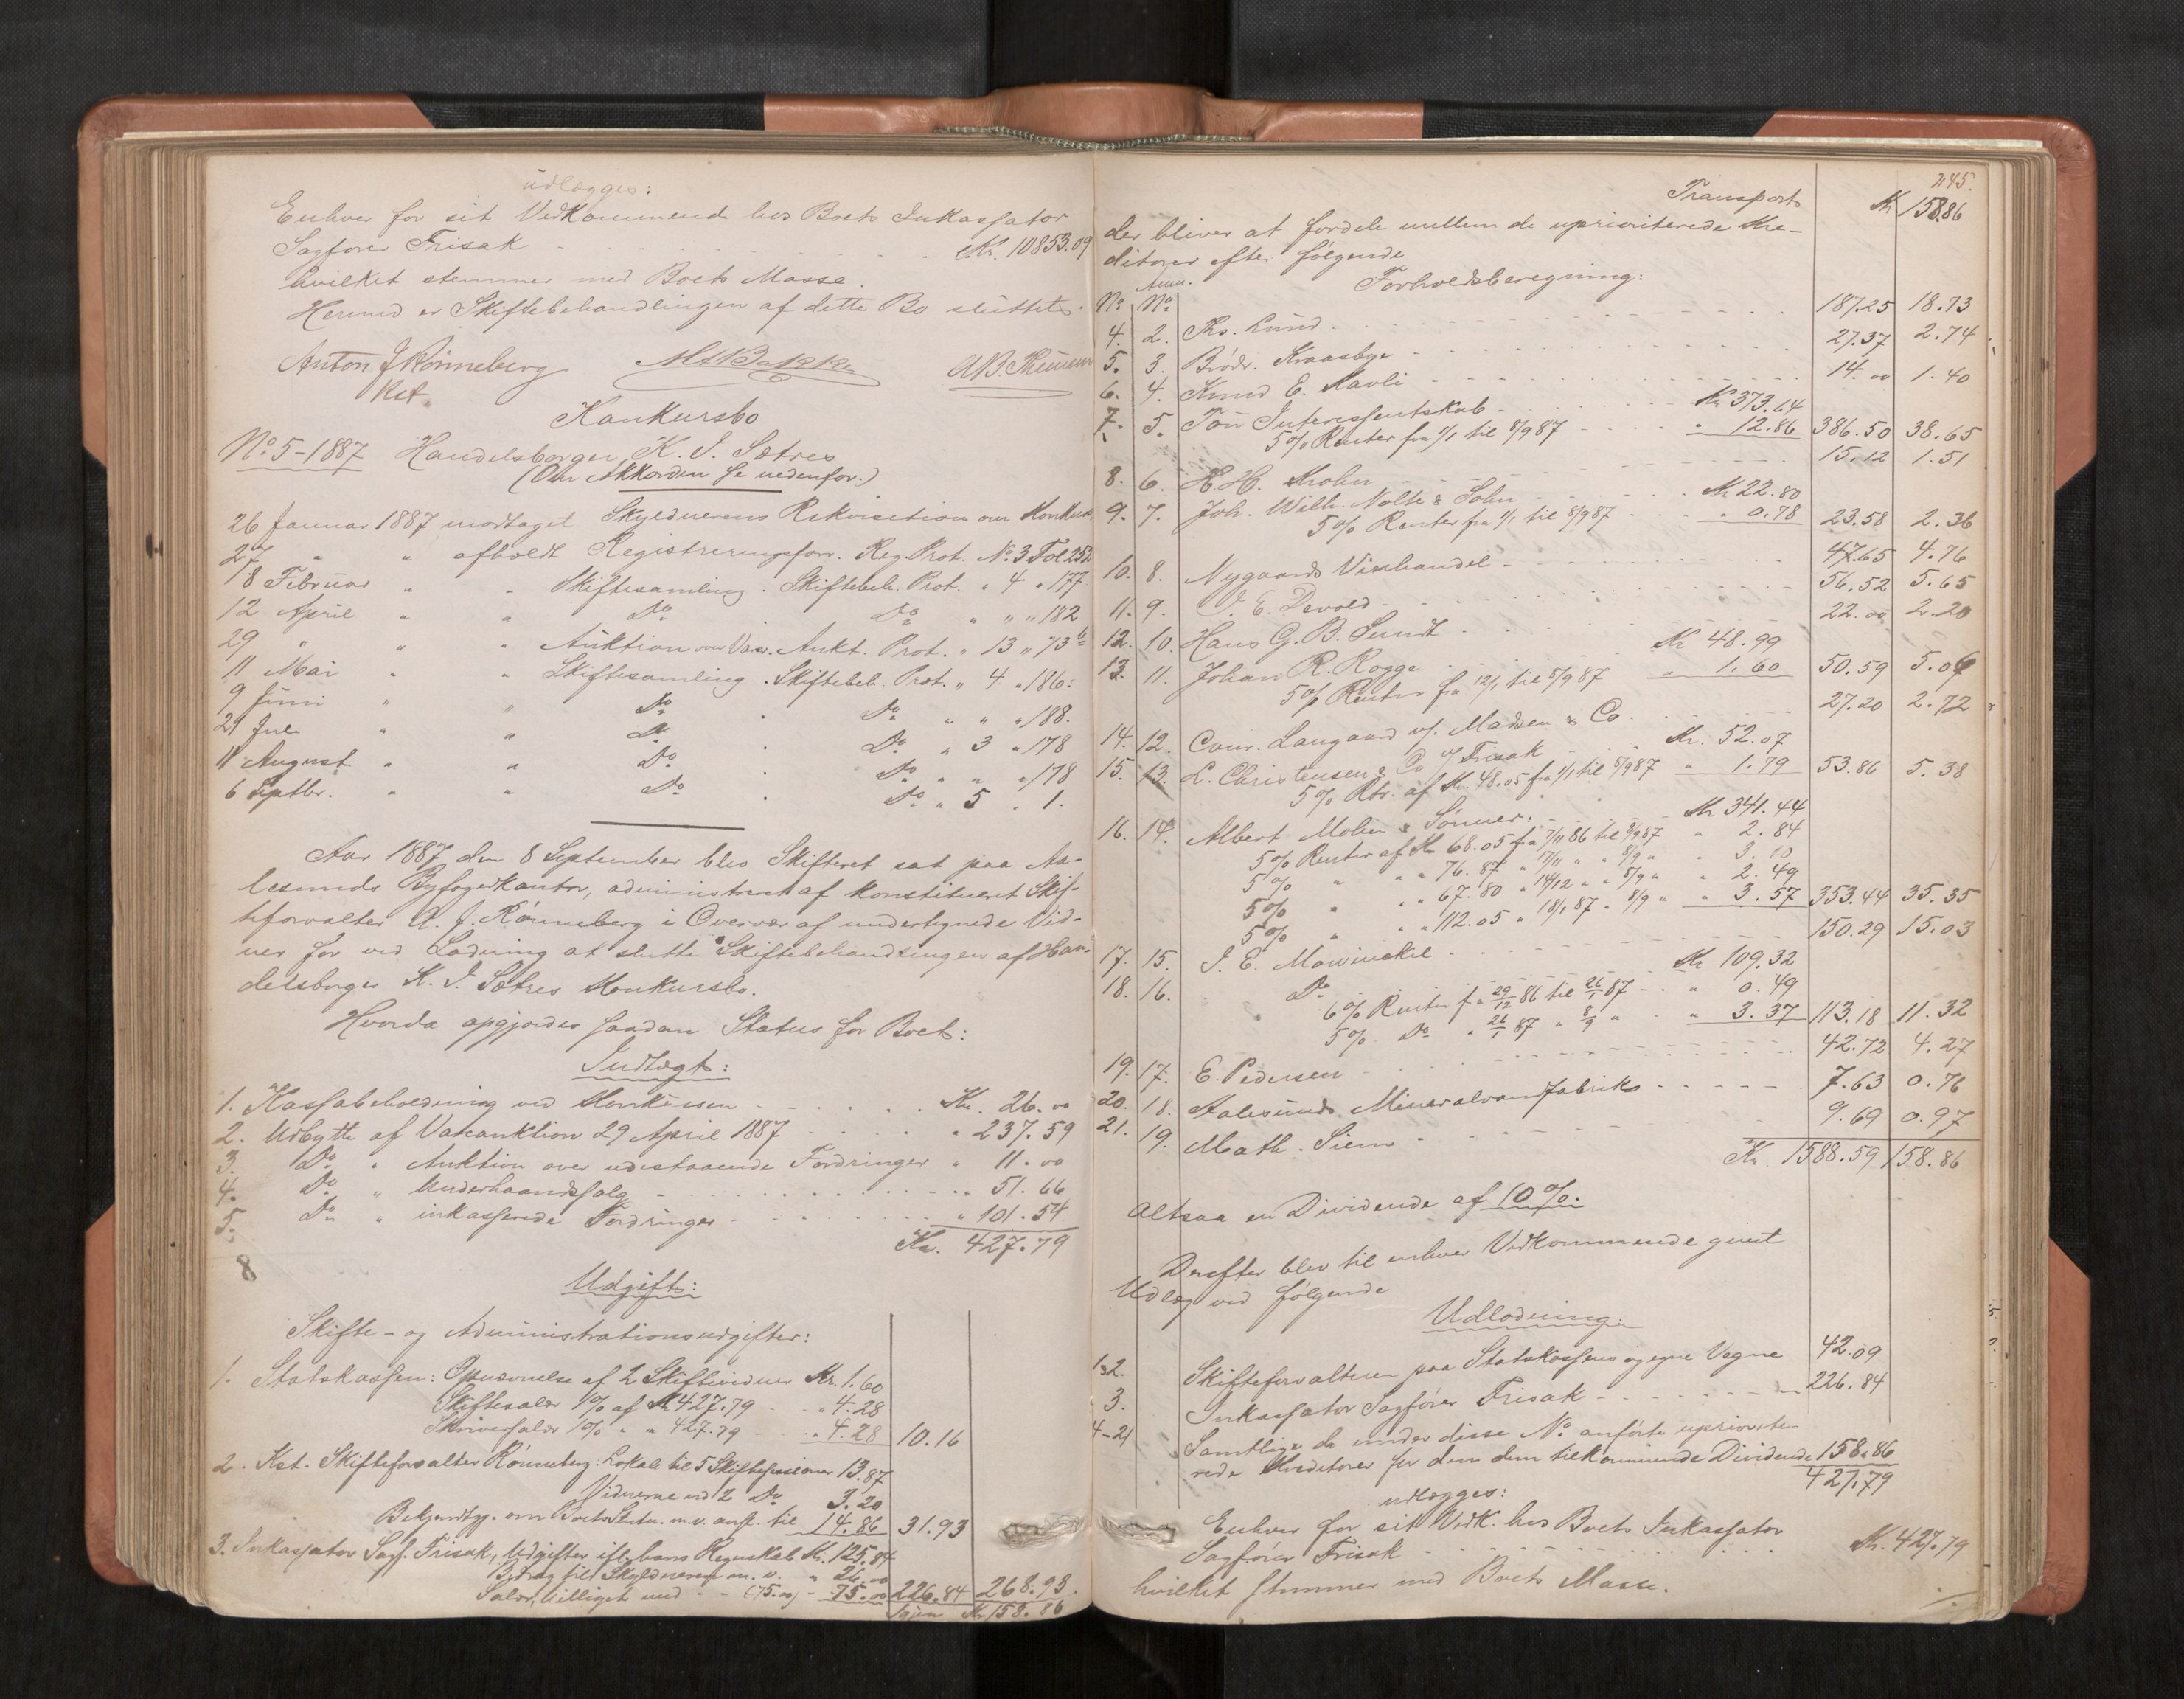 udlægges:
Enhver for sit Vedkommende hos Boets Inkassator
Sagfører Frisak Kr. 10853.09
hvilket stemmer med Boets Masse.
Hermed er Skiftebehandlingen af dette Bo sluttet.
Anton J Rønneberg
Kst.
Konkursbo
No. 5-1887 Handelsborger K. J. Sætres
(Om Akkorden se nedenfor.)
26 Januar 1887 modtaget Skyldnerens Rekvisition om Konkurs
27 " " afholdt Registreringsforr. Reg. Prot. No. 3 Fol 252
18 Februar " " Skiftesamling. Skiftebeh. Prot. " 4 " 177
12 April " " Do. Do. " " " 182
29 " " " Auktion over Varer. Aukt. Prot. " 13 " 73b
11 Mai " " Skiftesamling. Skiftebeh. Prot. " 4 " 186.
9 Juni " " Do. Do. " " " 188.
29 Juli " " Do. Do. " 3 " 178
11 August " " Do. Do. " " " 178
6 Septbr. " " Do. Do. " 5 " 1.
Aar 1887 den 8 September blev Skifteret sat paa Aa-
lesunds Byfogedkontor, administreret af konstitueret Skif-
teforvalter A. J. Rønneberg i Overvær af undertegnede Vid-
ner for ved Lodning at slutte Skiftebehandlingen af Han-
delsborger K. J. Sætres Konkursbo.
Hvorda opgjordes saadan Status for Boet:
Indtægt:
1. Kassabeholdning ved Konkursen Kr. 26.00
2. Udbytte af Vareauktion 29 April 1887 " 237.59
3. Do. " Auktion over udestaaende Fordringer " 11.00
4. Do. " Underhaandssalg " 51.66
5. Do. " inkasserede Fordringer " 101.54
Kr. 427.79
8
Udgift:
Skifte- og Administrationsudgifter:
1. Statskassen: Opnævnelse af 2 Skiftevidner Kr. 1.60
Skiftesalær 1% af Kr 427.79 " 4.28
Skriversalær 1% " " 427.79 " 4.28 10.16
2. Kst. Skifteforvalter Rønneberg: Lokale til 5 Skiftesessioner 13.87
Vidnerne ved 2 Do. 3.20
Bekjendtgj. om Boets Slutn. m.v. ansl. til 14.86 31.93
3. Inkassator Sagf. Frisak, Udgifter ifl. hans Regnskab Kr. 125.84
Bidrag til Skyldneren m. v. " 26.00
Salær, billiget med (75.00) 75.00 226.84 268.93.
Igjen Kr 158.86
245.
Transport Kr 158.86
der bliver at fordele mellem de uprioriterede Kre-
ditorer efter følgende
Forholdsberegning:
No. Anm. No.
4. 2. Chr. Lund 187.25 18.73
5. 3. Brødr. Kraasbye 27.37 2.74
6. 4. Knud E. Ravli 14.00 1.40
7. 5. Tou Interessentskab Kr 373.64
5% Renter fra 1/1 til 8/9 87 " 12.86 386.50 38.65
8. 6. H. H. Krohn 15.12 1.51
9. 7. Joh. Wilh. Nolte & Sohn Kr 22.80
5% Renter fra 1/1 til 8/9 87 " 0.78 23.58 2.36
10. 8. Nygaards Vinhandel 47.65 4.76
11. 9. O. E. Devold 56.52 5.65
12. 10. Hans G. B. Sundt 22.00 2.20
13. 11. Johan R. Rogge Kr 48.99
5% Renter fra 12/1 til 8/9 87 " 1.60 50.59 5.06
14. 12. Conr. Langaard v/. Madsen & Co. 27.20 2.72
15. 13. L. Christensen & Co v/ Frisak Kr. 52.07
5% Rtr. af Kr. 48.05 fra 1/1 til 8/9 87 " 1.79 53.86 5.38
16. 14. Albert Mohn & Sønner. Kr 341.44
5% Renter af Kr 68.05 fra 7/11 86 til 8/9 87 " 2.84
5% " " " 76.87 " 7/11 " " 8/9 " " 3.10
5% " " " 67.80 " 14/12 " " 8/9 " " 2.49
5% " " " 112.05 " 18/1 87 " 8/9 " " 3.57 353.44 35.35
17. 15. J. E. Mowinckel 150.29 15.03
18. 16. Do. Kr 109.32
6% Renter fra 29/12 86 til 26/1 87 " 0.49
5% Do. " 26/1 87 " 8/9 " " 3.37 113.18 11.32
19. 17. E. Pedersen 42.72 4.27
20. 18. Aalesunds Mineralvandfabrik 7.63 0.76
21. 19. Math. Siem 9.69 0.97
Kr. 1588.59 158.86
Altsaa en Dividende af 10%.
Derefter blev til enhver Vedkommende gjort
Udlæg ved følgende
Udlodning:
1&2. Skifteforvalteren paa Statskassens og egne Vegne 42.09
3. Inkassator Sagfører Frisak 226.84
4-21 Samtlige de under disse No. anførte uprioite-
rede Kreditorer for den dem tilkommende Dividende 158.86
427.79
udlægges:
Enhver for sit Vedk. hos Boets Inkassator
Sagfører Frisak Kr. 427.79
hvilket stemmer med Boets Masse.